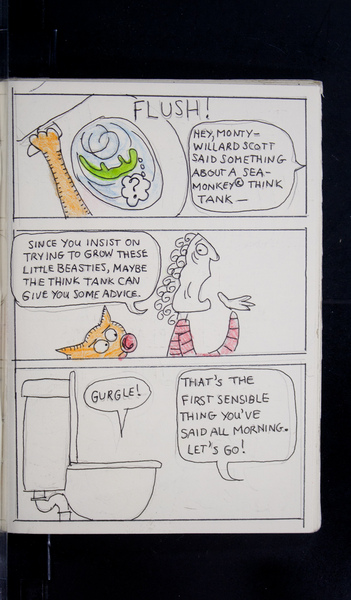 FLUSH!
?
HEY, MONTY—
WILLARD SCOTT
SAID SOMETHING
ABOUT A SEA-
MONKEY® THINK
TANK—
SINCE YOU INSIST ON
TRYING TO GROW THESE
LITTLE BEASTIES, MAYBE
THE THINK TANK CAN
GIVE YOU SOME ADVICE.
GURGLE!
THAT'S THE
FIRST SENSIBLE
THING YOU'VE
SAID ALL MORNING.
LET'S GO!